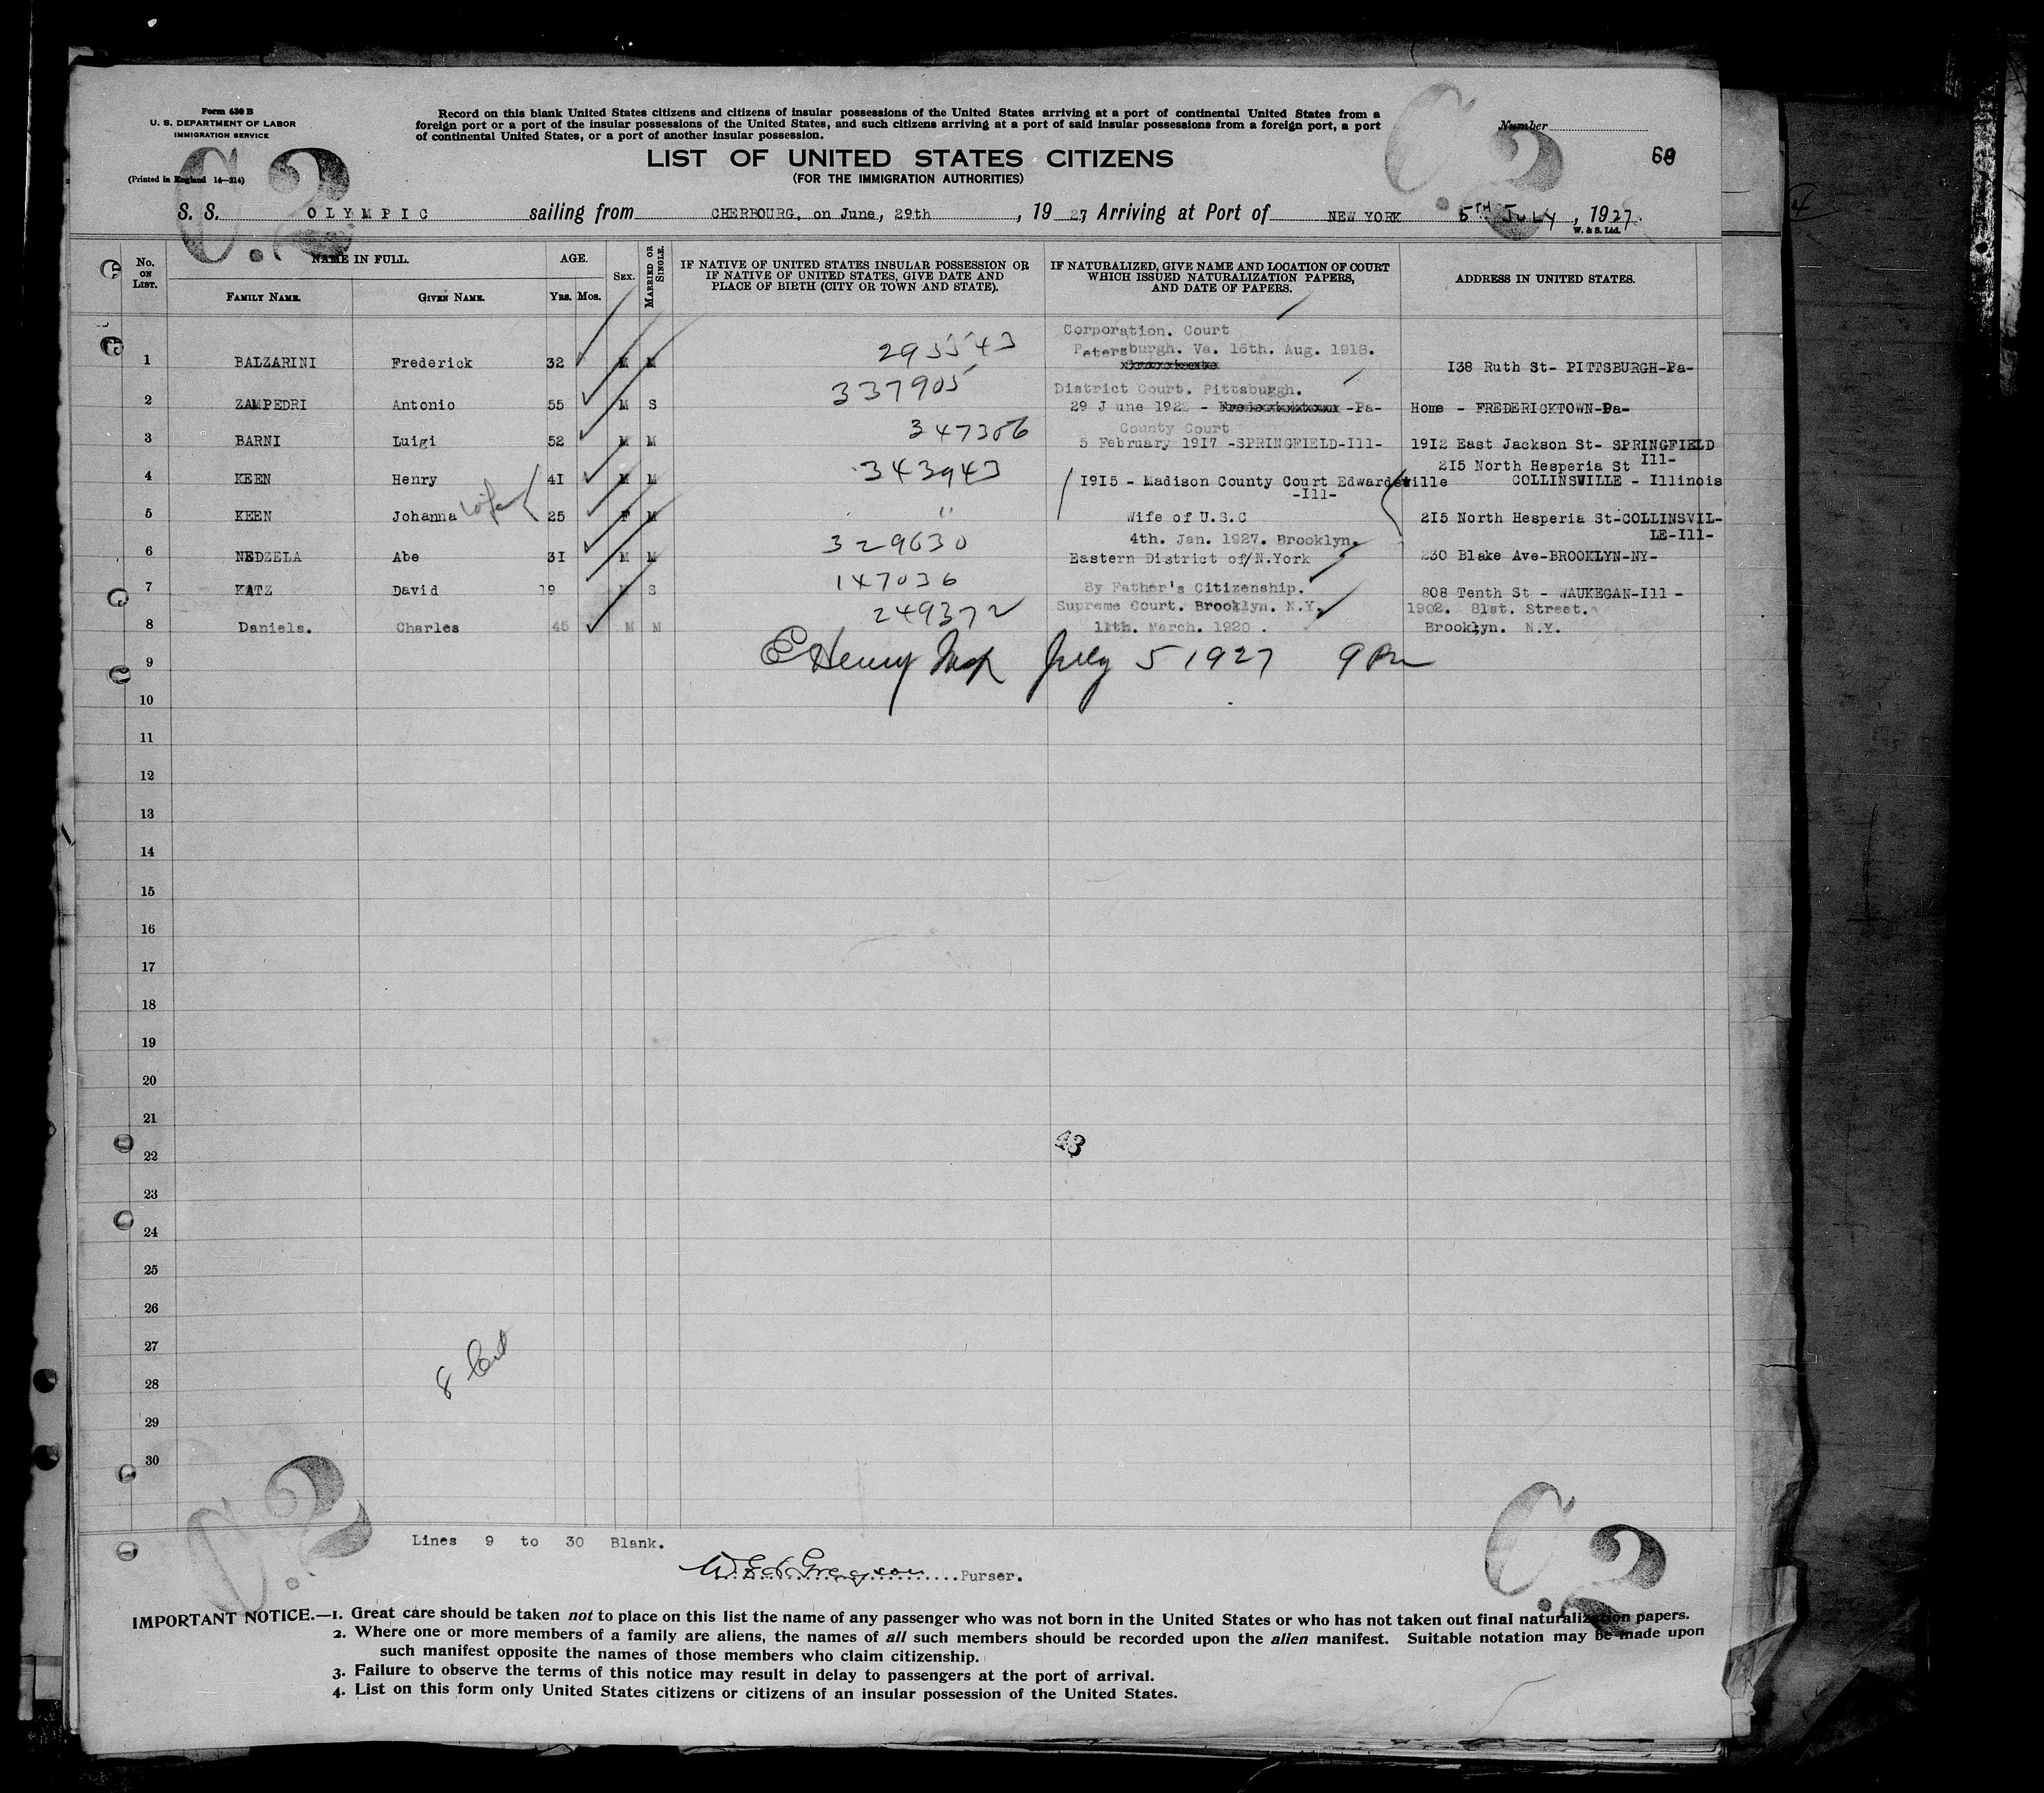 Form 630 B
U. S. DEPARTMENT OF LABOR
IMMIGRATION SERVICE
(Printed in England 14—214)
Record on this blank United States citizens and citizens of insular possessions of the United States arriving at a port of continental United States from a
foreign port or a port of the insular possessions of the United States, and such citizens arriving at a port of said insular possessions from a foreign port, a port
of continental United States, or a port of another insular possession.
Number
C.2
C.2
68
LIST OF UNITED STATES CITIZENS
(FOR THE IMMIGRATION AUTHORITIES)
S. S. OLYMPIC sailing from CHERBOURG, on June, 29th, 1927 Arriving at Port of NEW YORK 5TH JULY, 1927.
W. & S. Ltd.
No. ON LIST. NAME IN FULL. FAMILY NAME. GIVEN NAME. AGE. YRS. MOS. SEX. MARRIED OR SINGLE. IF NATIVE OF UNITED STATES INSULAR POSSESSION OR IF NATIVE OF UNITED STATES, GIVE DATE AND PLACE OF BIRTH (CITY OR TOWN AND STATE). IF NATURALIZED, GIVE NAME AND LOCATION OF COURT WHICH ISSUED NATURALIZATION PAPERS, AND DATE OF PAPERS. ADDRESS IN UNITED STATES.
Corporation. Court
1 BALZARINI Frederick 32 M M 295543 Petersburgh. Va. 15th. Aug. 1918. 138 Ruth St- PITTSBURGH-Pa-
District Court. Pittsburgh.
2 ZAMPEDRI Antonio 55 M S 337905 29 June 192 - -Pa- Home - FREDERICKTOWN-Pa-
County Court
3 BARNI Luigi 52 M M 347306 5 February 1917 -SPRINGFIELD-Ill- 1912 East Jackson St- SPRINGFIELD Ill-
215 North Hesperia St
4 KEEN Henry 41 M M 343943 1915 - Madison County Court Edwardsville -Ill- COLLINSVILLE - Illinois
5 KEEN Johanna wife 25 F M " Wife of U.S.C 215 North Hesperia St-COLLINSVIL-
LE-Ill-
4th. Jan. 1927. Brooklyn.
6 NEDZELA Abe 31 M M 329630 Eastern District of/N.York 230 Blake Ave-BROOKLYN-NY-
7 KATZ David 19 M S 147036 By Father's Citizenship. 808 Tenth St - WAUKEGAN-Ill -
Supreme Court. Brooklyn. N.Y. 1902. 81st. Street.
8 Daniels. Charles 45 M M 249372 11th. March. 1920. Brooklyn. N.Y.
9 E Henry Insp July 5 1927 9 Pm
10
11
12
13
14
15
16
17
18
19
20
21
43
22
23
24
25
26
27
8
28
29
30
C.2
C.2
Lines 9 to 30 Blank.
Purser.
IMPORTANT NOTICE.—1. Great care should be taken not to place on this list the name of any passenger who was not born in the United States or who has not taken out final naturalization papers.
2. Where one or more members of a family are aliens, the names of all such members should be recorded upon the alien manifest. Suitable notation may be made upon
such manifest opposite the names of those members who claim citizenship.
3. Failure to observe the terms of this notice may result in delay to passengers at the port of arrival.
4. List on this form only United States citizens or citizens of an insular possession of the United States.